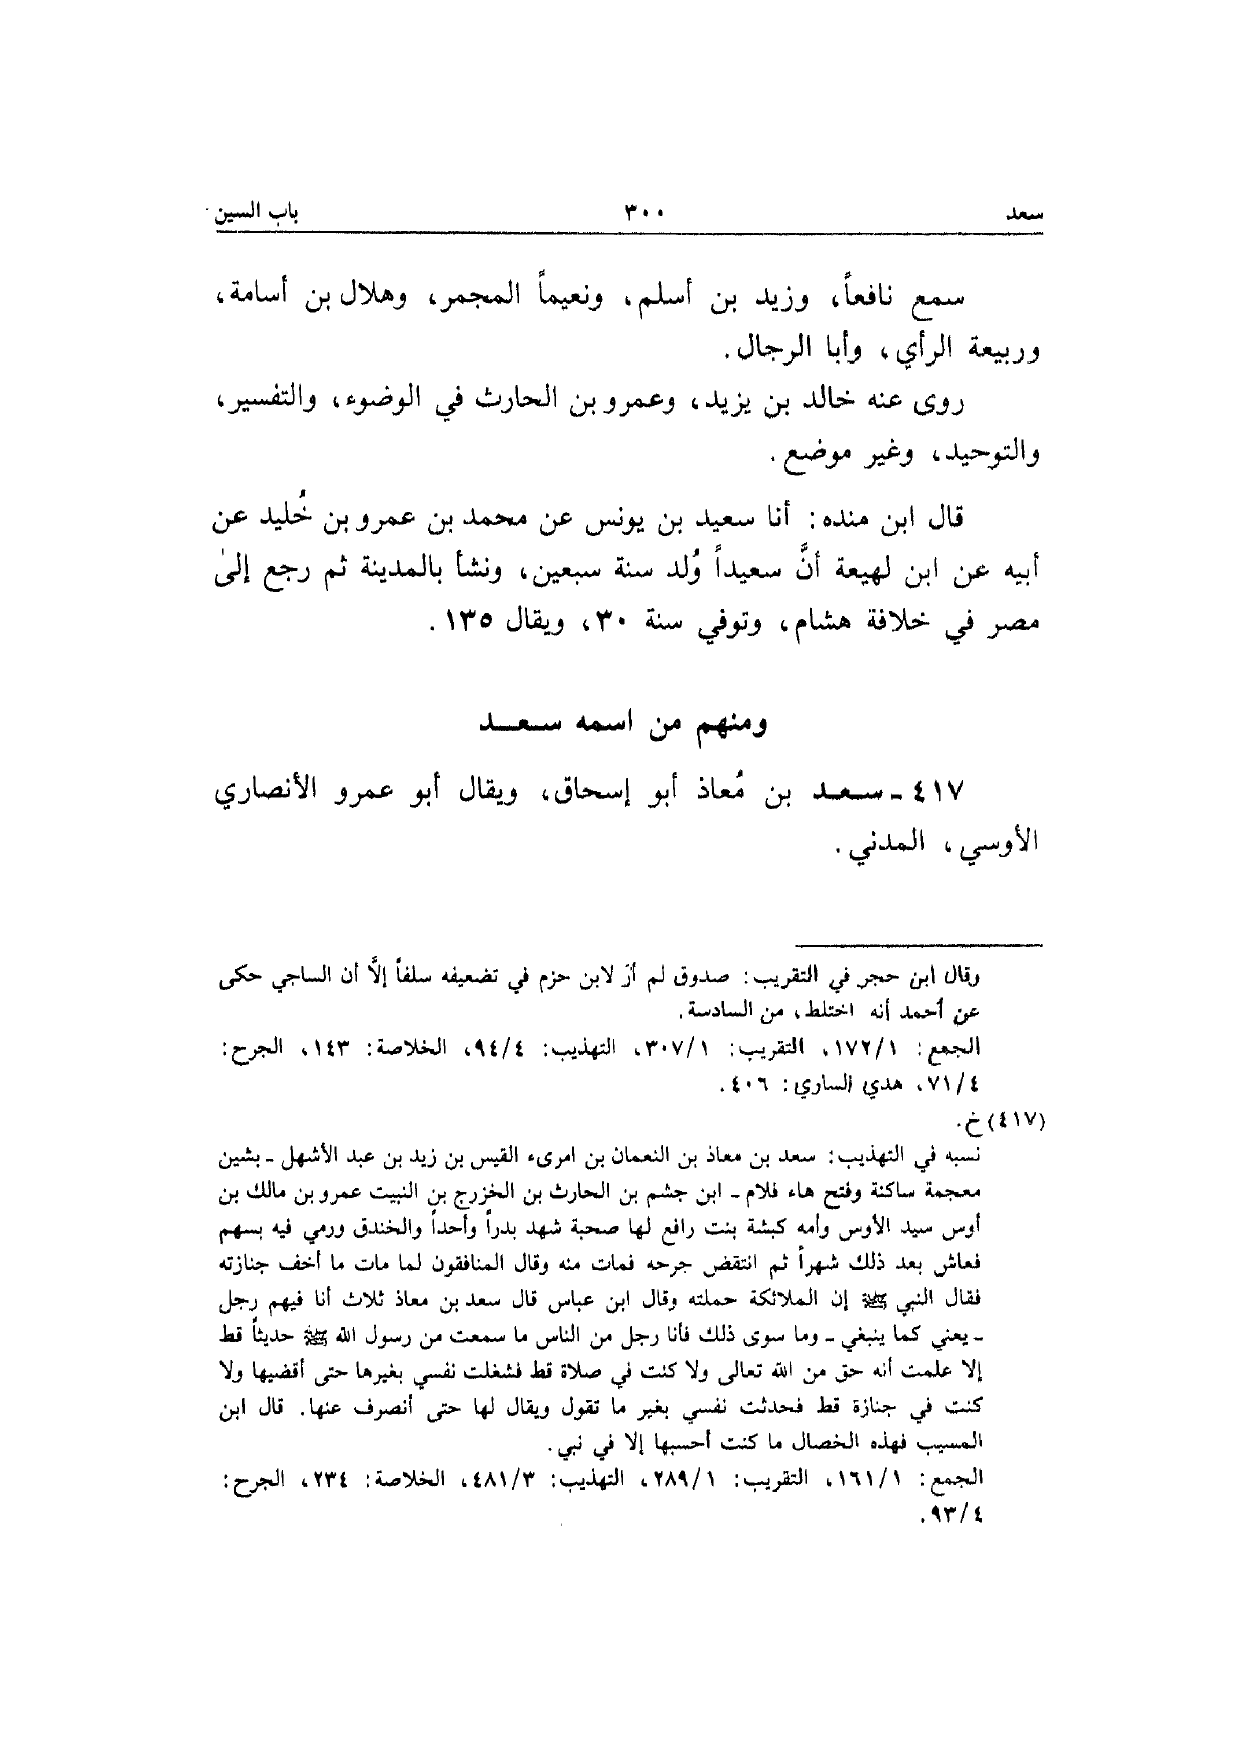 سعد ٣٠٠ باب السين
سمع نافعاً، وزيد بن أسلم، ونعيماً المجمر، وهلال بن أسامة،
وربيعة الرأي، وأبا الرجال.
روى عنه خالد بن يزيد، وعمرو بن الحارث في الوضوء، والتفسير،
والتوحيد، وغير موضع.
قال ابن منده: أنا سعيد بن يونس عن محمد بن عمرو بن خُليد عن
أبيه عن ابن لهيعة أنَّ سعيداً وُلد سنة سبعين، ونشأ بالمدينة ثم رجع إلىٰ
مصر في خلافة هشام، وتوفي سنة ٣٠، ويقال ١٣٥.
ومنهم من اسمه سعد
٤١٧ - سعد بن مُعاذ أبو إسحاق، ويقال أبو عمرو الأنصاري
الأوسي، المدني.
وقال ابن حجر في التقريب: صدوق لم أرَ لابن حزم في تضعيفه سلفاً إلَّا أن الساجي حكى
عن أحمد أنه اختلط، من السادسة.
الجمع: ١/١٧٢، التقريب: ١/٣٠٧، التهذيب: ٤/٩٤، الخلاصة: ١٤٣، الجرح:
٤/٧١، هدي الساري: ٤٠٦.
(٤١٧) خ.
نسبه في التهذيب: سعد بن معاذ بن النعمان بن امرىء القيس بن زيد بن عبد الأشهل - بشين
معجمة ساكنة وفتح هاء فلام - ابن جشم بن الحارث بن الخزرج بن النبيت عمرو بن مالك بن
أوس سيد الأوس وأمه كبشة بنت رافع لها صحبة شهد بدراً وأحداً والخندق ورمي فيه بسهم
فعاش بعد ذلك شهراً ثم انتقض جرحه فمات منه وقال المنافقون لما مات ما أخف جنازته
فقال النبي ﷺ إن الملائكة حملته وقال ابن عباس قال سعد بن معاذ ثلاث أنا فيهم رجل
- يعني كما ينبغي - وما سوى ذلك فأنا رجل من الناس ما سمعت من رسول الله ﷺ حديثاً قط
إلا علمت أنه حق من الله تعالى ولا كنت في صلاة قط فشغلت نفسي بغيرها حتى أقضيها ولا
كنت في جنازة قط فحدثت نفسي بغير ما تقول ويقال لها حتى أنصرف عنها. قال ابن
المسيب فهذه الخصال ما كنت أحسبها إلا في نبي.
الجمع: ١/١٦١، التقريب: ١/٢٨٩، التهذيب: ٣/٤٨١، الخلاصة: ٢٣٤، الجرح:
٤/٩٣.